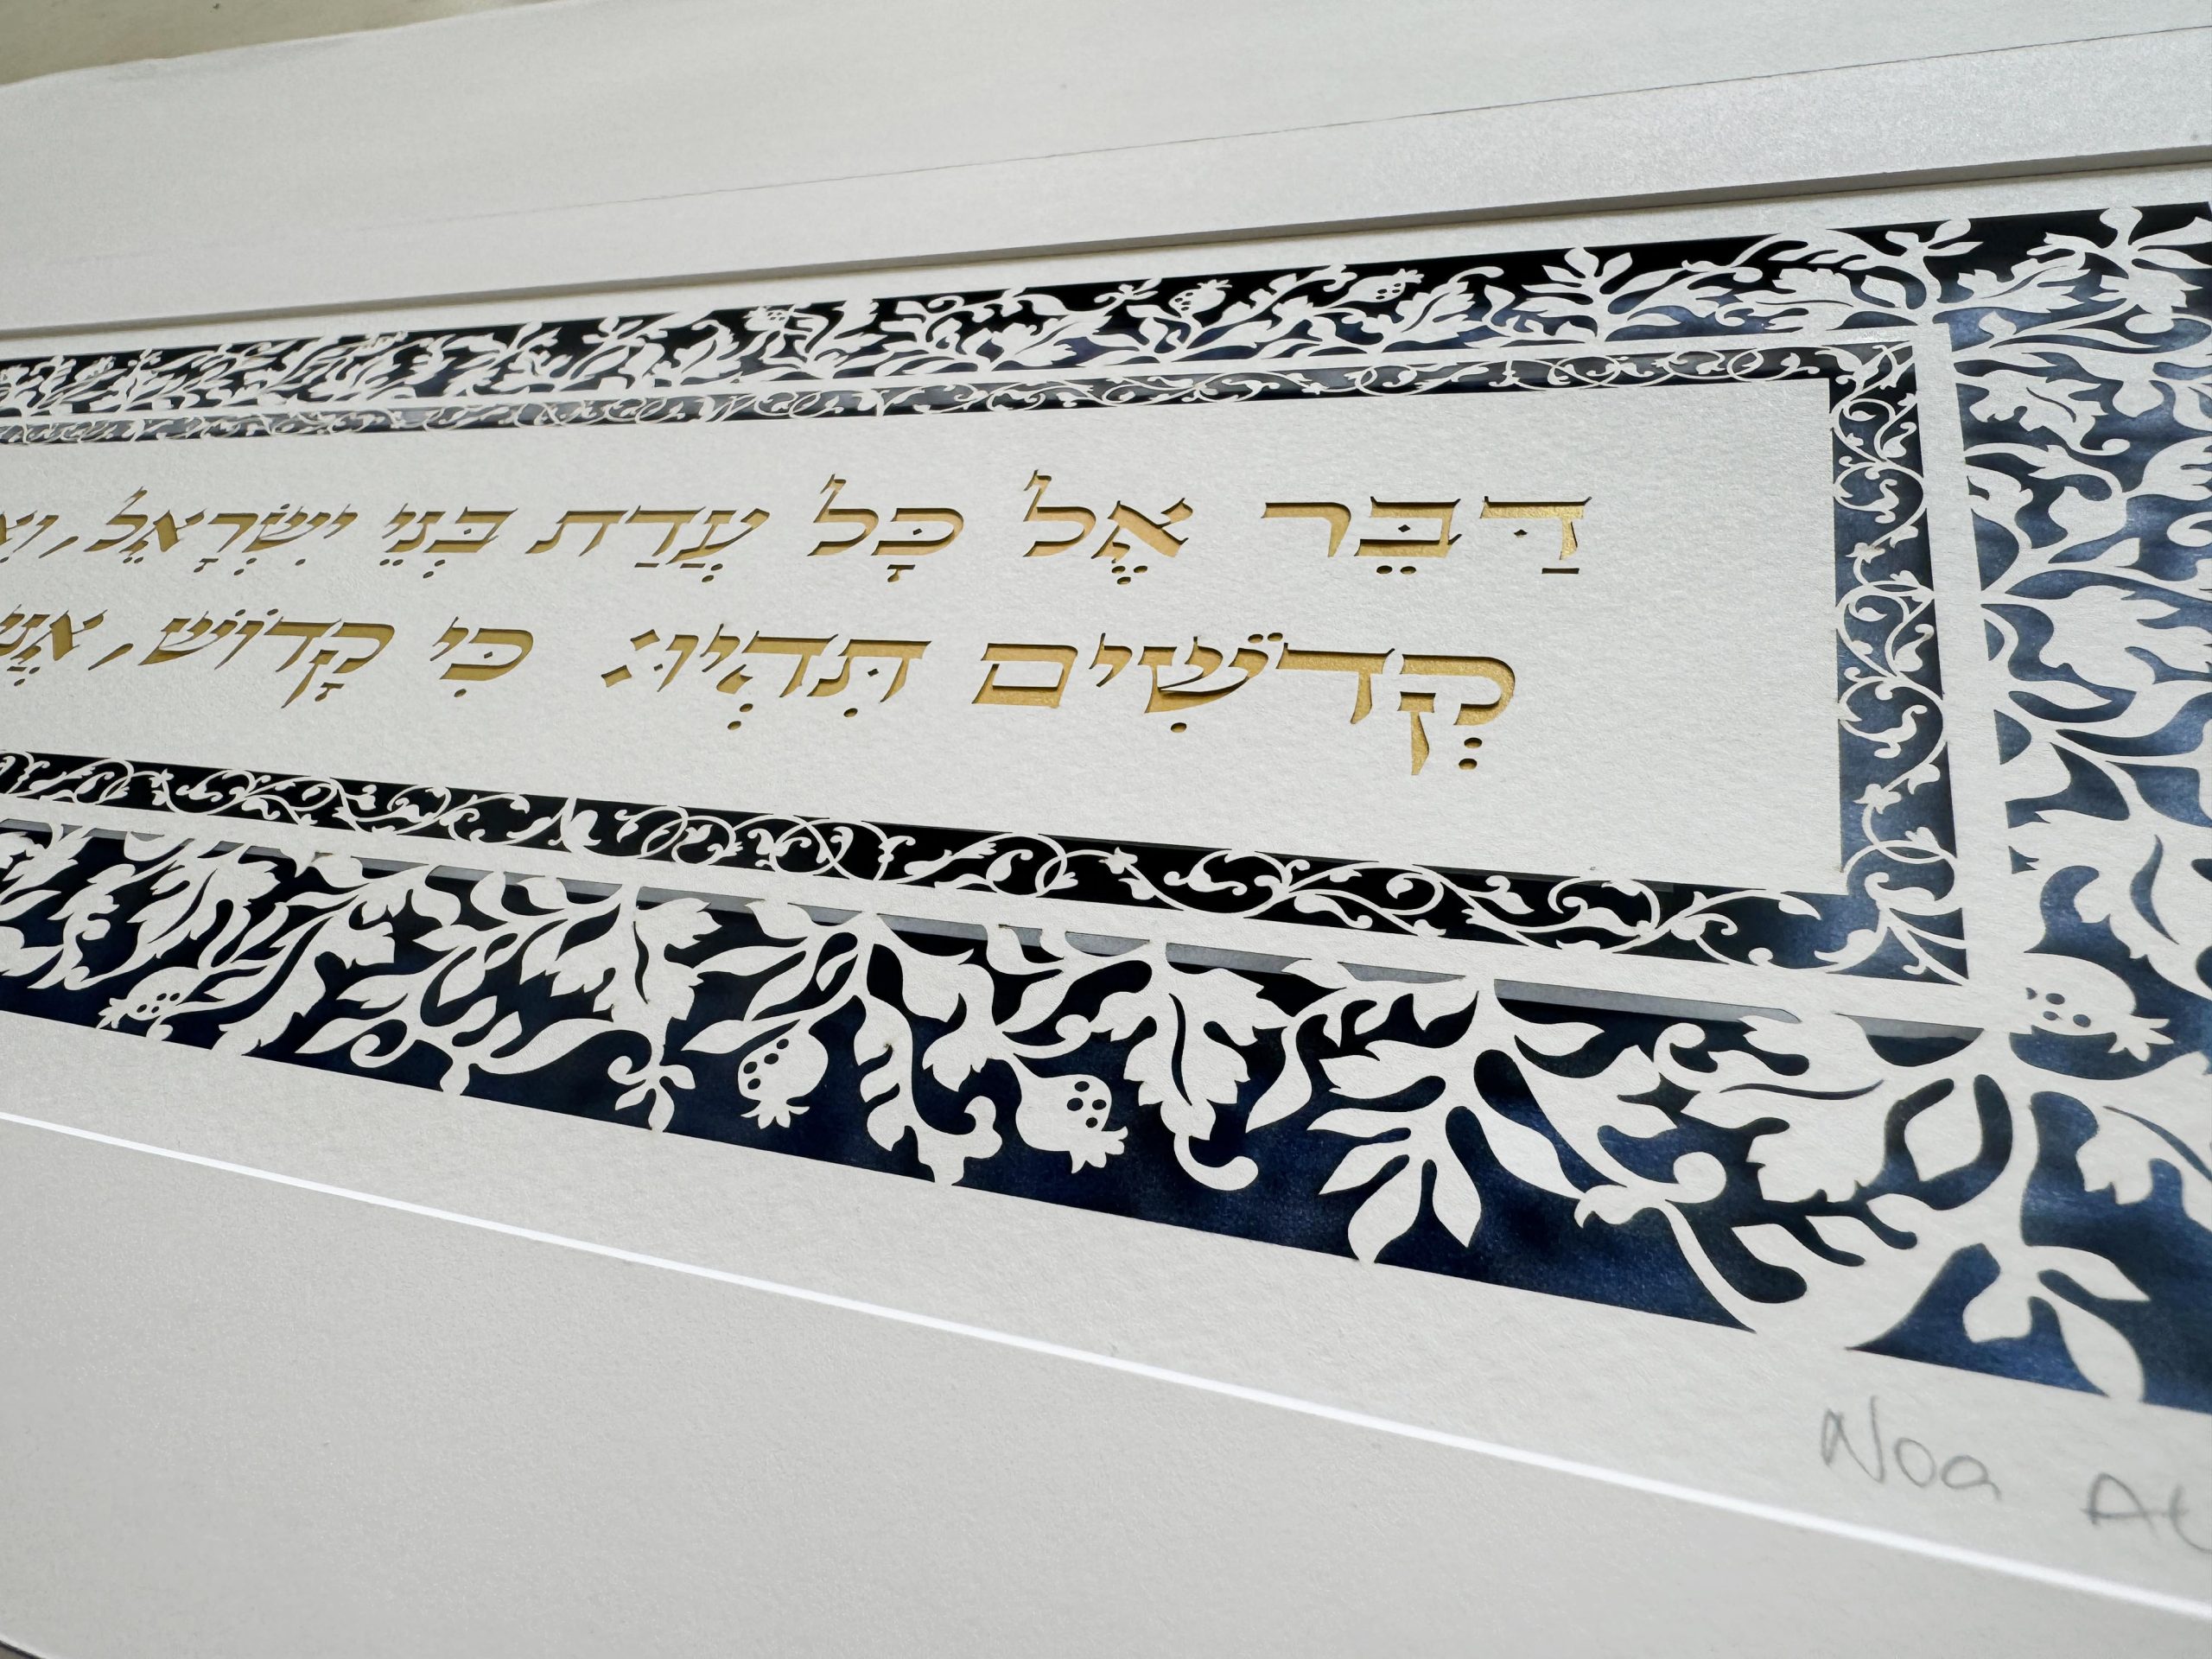 דַּבֵּר אֶל כָּל עֲדַת בְּנֵי יִשְׂרָאֵל,
קְדֹשִׁים תִּהְיוּ: כִּי קָדוֹשׁ,
Noa